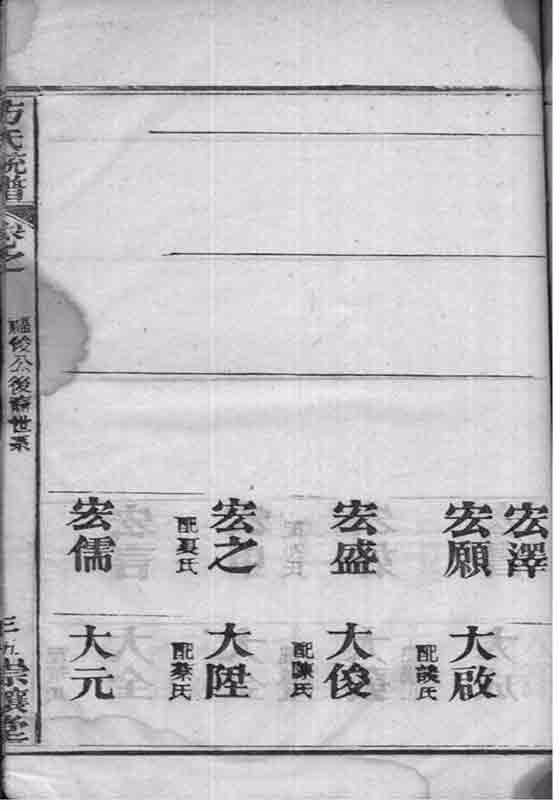 宏澤
宏願
大啟
配談氏
宏盛
大俊
配陳氏
宏之
配夏氏
大陞
配蔡氏
宏儒
大元
方氏統譜
卷之一
福俊公後裔世系
三九
崇讓堂